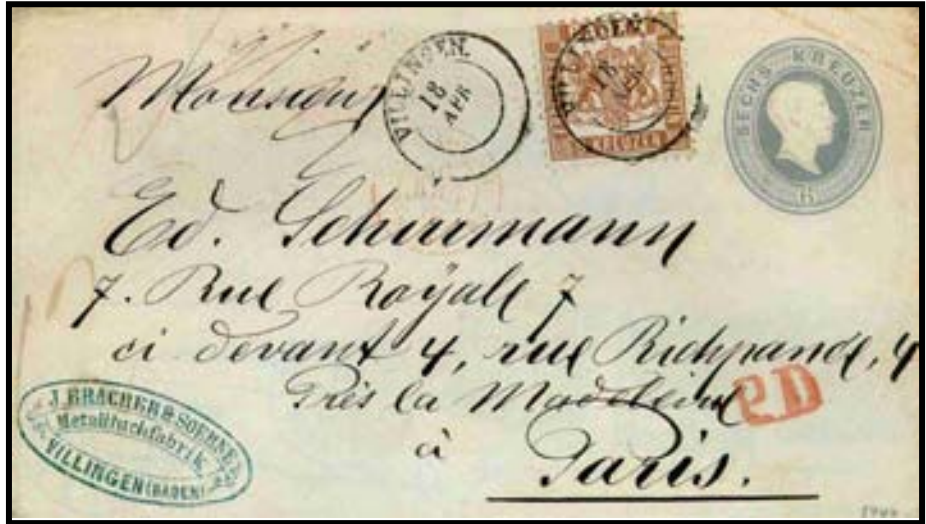 Monsieur
VILLINGEN.
18
APR
VILLINGEN.
18
KREUZER
SECHS KREUZER
6
Ed. Schürmann
7. Rue Royale 7
ci devant 4, rue Richpance, 4
Près la Madeleine
P.D
à
Paris.
J. BRACHER & SOEHNE
Metalltuchfabrik
VILLINGEN (BADEN)